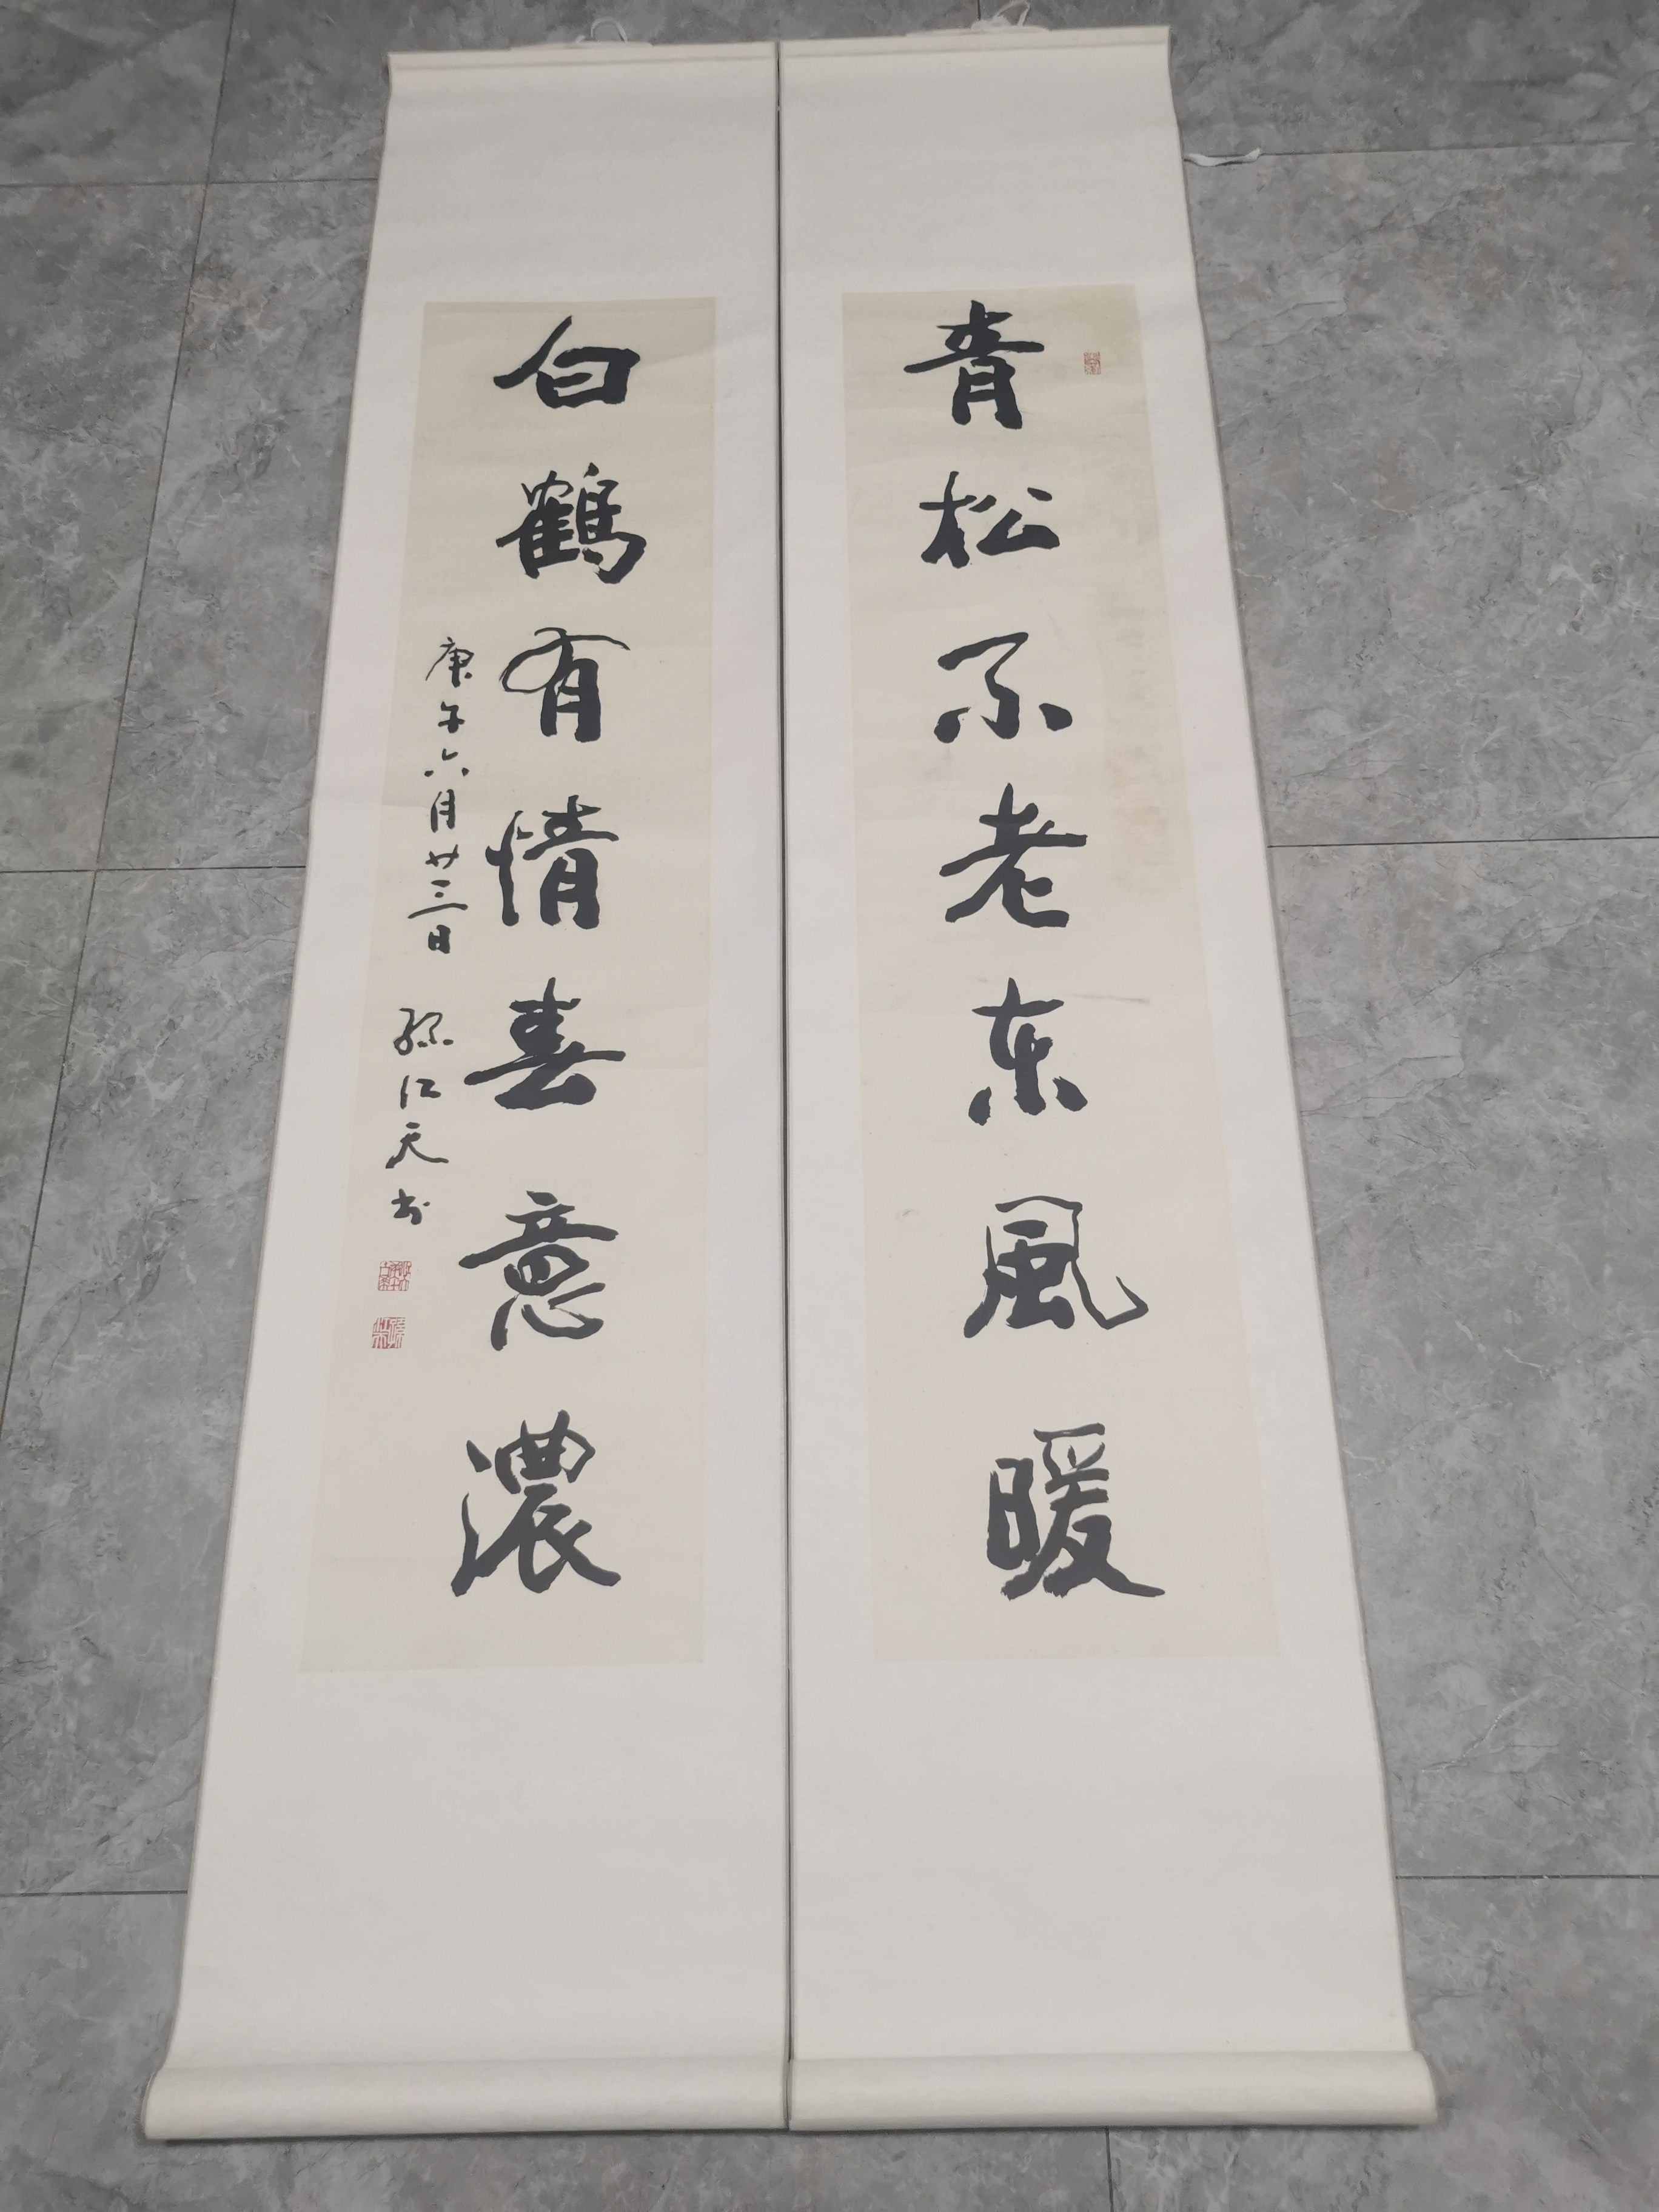 青松不老东風暖
白鶴有情春意濃
庚午六月廿三日 孫江天书